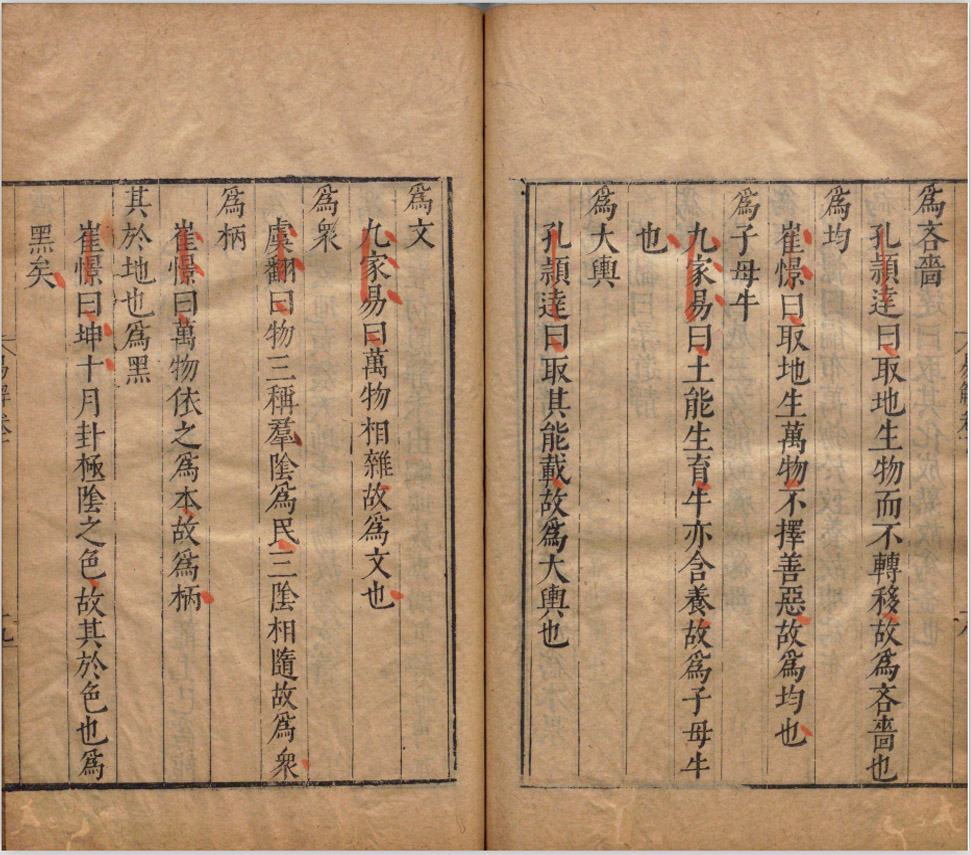 為吝嗇
孔頴逹曰取地生物而不轉移故為吝嗇也
為均
崔憬曰取地生萬物不擇善惡故為均也
為子母牛
九家易曰土能生育牛亦含養故為子母牛
也
為大輿
孔頴逹曰取其能載故為大輿也
為文
九家易曰萬物相雜故為文也
為衆
虞翻曰物三稱羣陰為民三陰相隨故為衆
為柄
崔憬曰萬物依之為本故為柄
其於地也為黑
崔憬曰坤十月卦極陰之色故其於色也為
黑矣